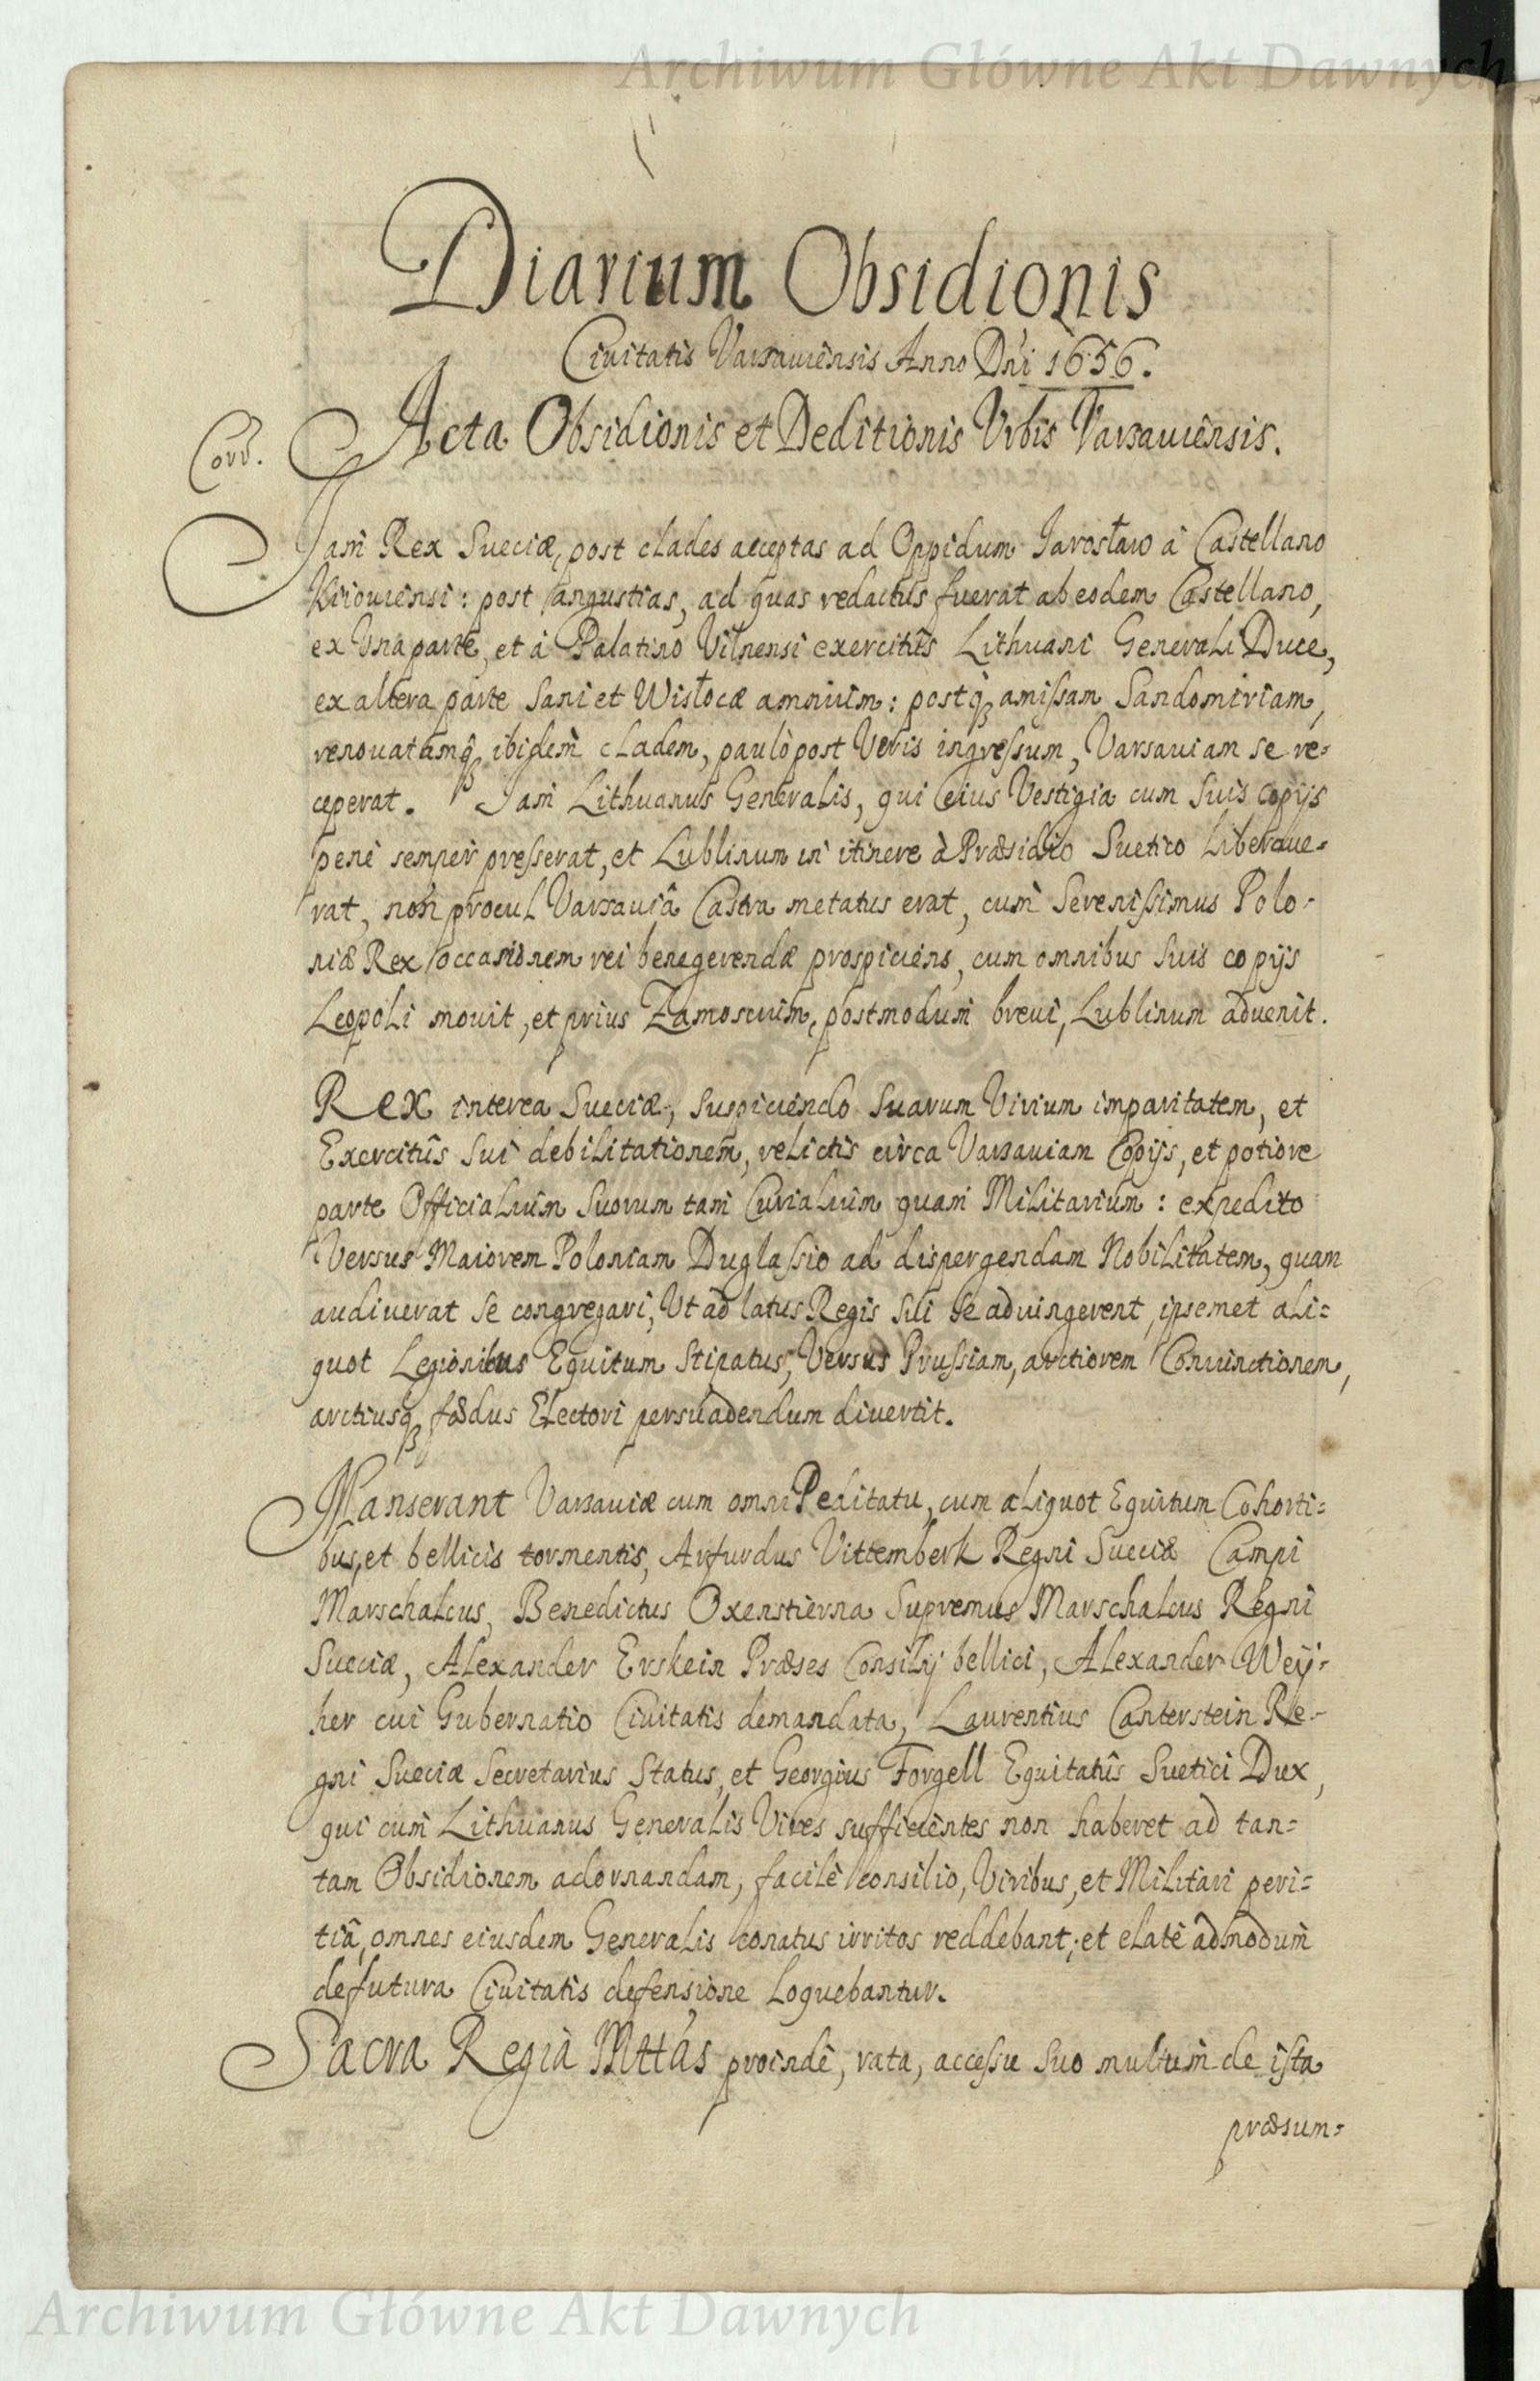 Archiwum Główne Akt Dawnych
Diarium Obsidionis
Civitatis Varsauiensis Anno Dñi 1656.
Acta Obsidionis et Deditionis Vrbis Varsauiensis.
Corr.
Jam Rex Sueciæ, post clades acceptas ad Oppidum Jarosław à Castellano
Kiiouiensi: post angustias, ad quas redactus fuerat ab eodem Castellano,
ex Vna parte, et à Palatino Vilnensi exercitûs Lithuani Generali Duce,
ex altera parte Sani et Wisłocæ amnium: postq₃ amissam Sandomiriam,
renouatamq₃ ibidem cladem, paulò post Veris ingressum, Varsauiam se re=
ceperat. Jam Lithuanus Generalis, qui eius Vestigia cum suis copijs
penè semper presserat, et Lublinum in itinere à Præsidio Suetico liberaue=
rat, non procul Varsauiâ Castra metatus erat, cum Serenissimus Polo=
niæ Rex occasionem rei benegerendæ prospiciens, cum omnibus suis copijs
Leopoli mouit, et prius Zamoscium, postmodum breui, Lublinum aduenit.
Rex interea Sueciæ, suspiciendo suarum Virium imparitatem, et
Exercitûs sui debilitationem, relictis circa Varsauiam Copijs, et potiore
parte Officialium suorum tam Curialium quam Militarium: expedito
Versus Maiorem Poloniam Duglassio ad dispergendam Nobilitatem, quam
audiuerat se congregari, Vt ad latus Regis sui se aduingerent, ipsemet ali=
quot Legionibus Equitum stipatus, Versus Prussiam, arctiorem Coniunctionem,
arctiusq₃ fædus Electori persuadendum divertit.
Manserant Varsauiæ cum omni Peditatu, cum aliquot Equitum Cohorti=
bus, et bellicis tormentis, Arfurdus Vittemberk Regni Sueciæ Campi
Marschalcus, Benedictus Oxenstierna Supremus Marschalcus Regni
Sueciæ, Alexander Erskein Præses Consilij bellici, Alexander Weÿ=
her cui Gubernatio Ciuitatis demandata, Laurentius Canterstein Re=
gni Sueciæ Secretarius Status, et Georgius Forgell Equitatûs Suetici Dux,
qui cum Lithuanus Generalis Vires sufficientes non haberet ad tan=
tam Obsidionem adornandam, facilè consilio, Viribus, et Militari peri=
tiâ, omnes eiusdem Generalis conatus irritos reddebant; et elatè admodum
de futura Ciuitatis defensione loquebantur.
Sacra Regia Mttas proindè, rata, accessu suo multum de ista
præsum=
Archiwum Główne Akt Dawnych